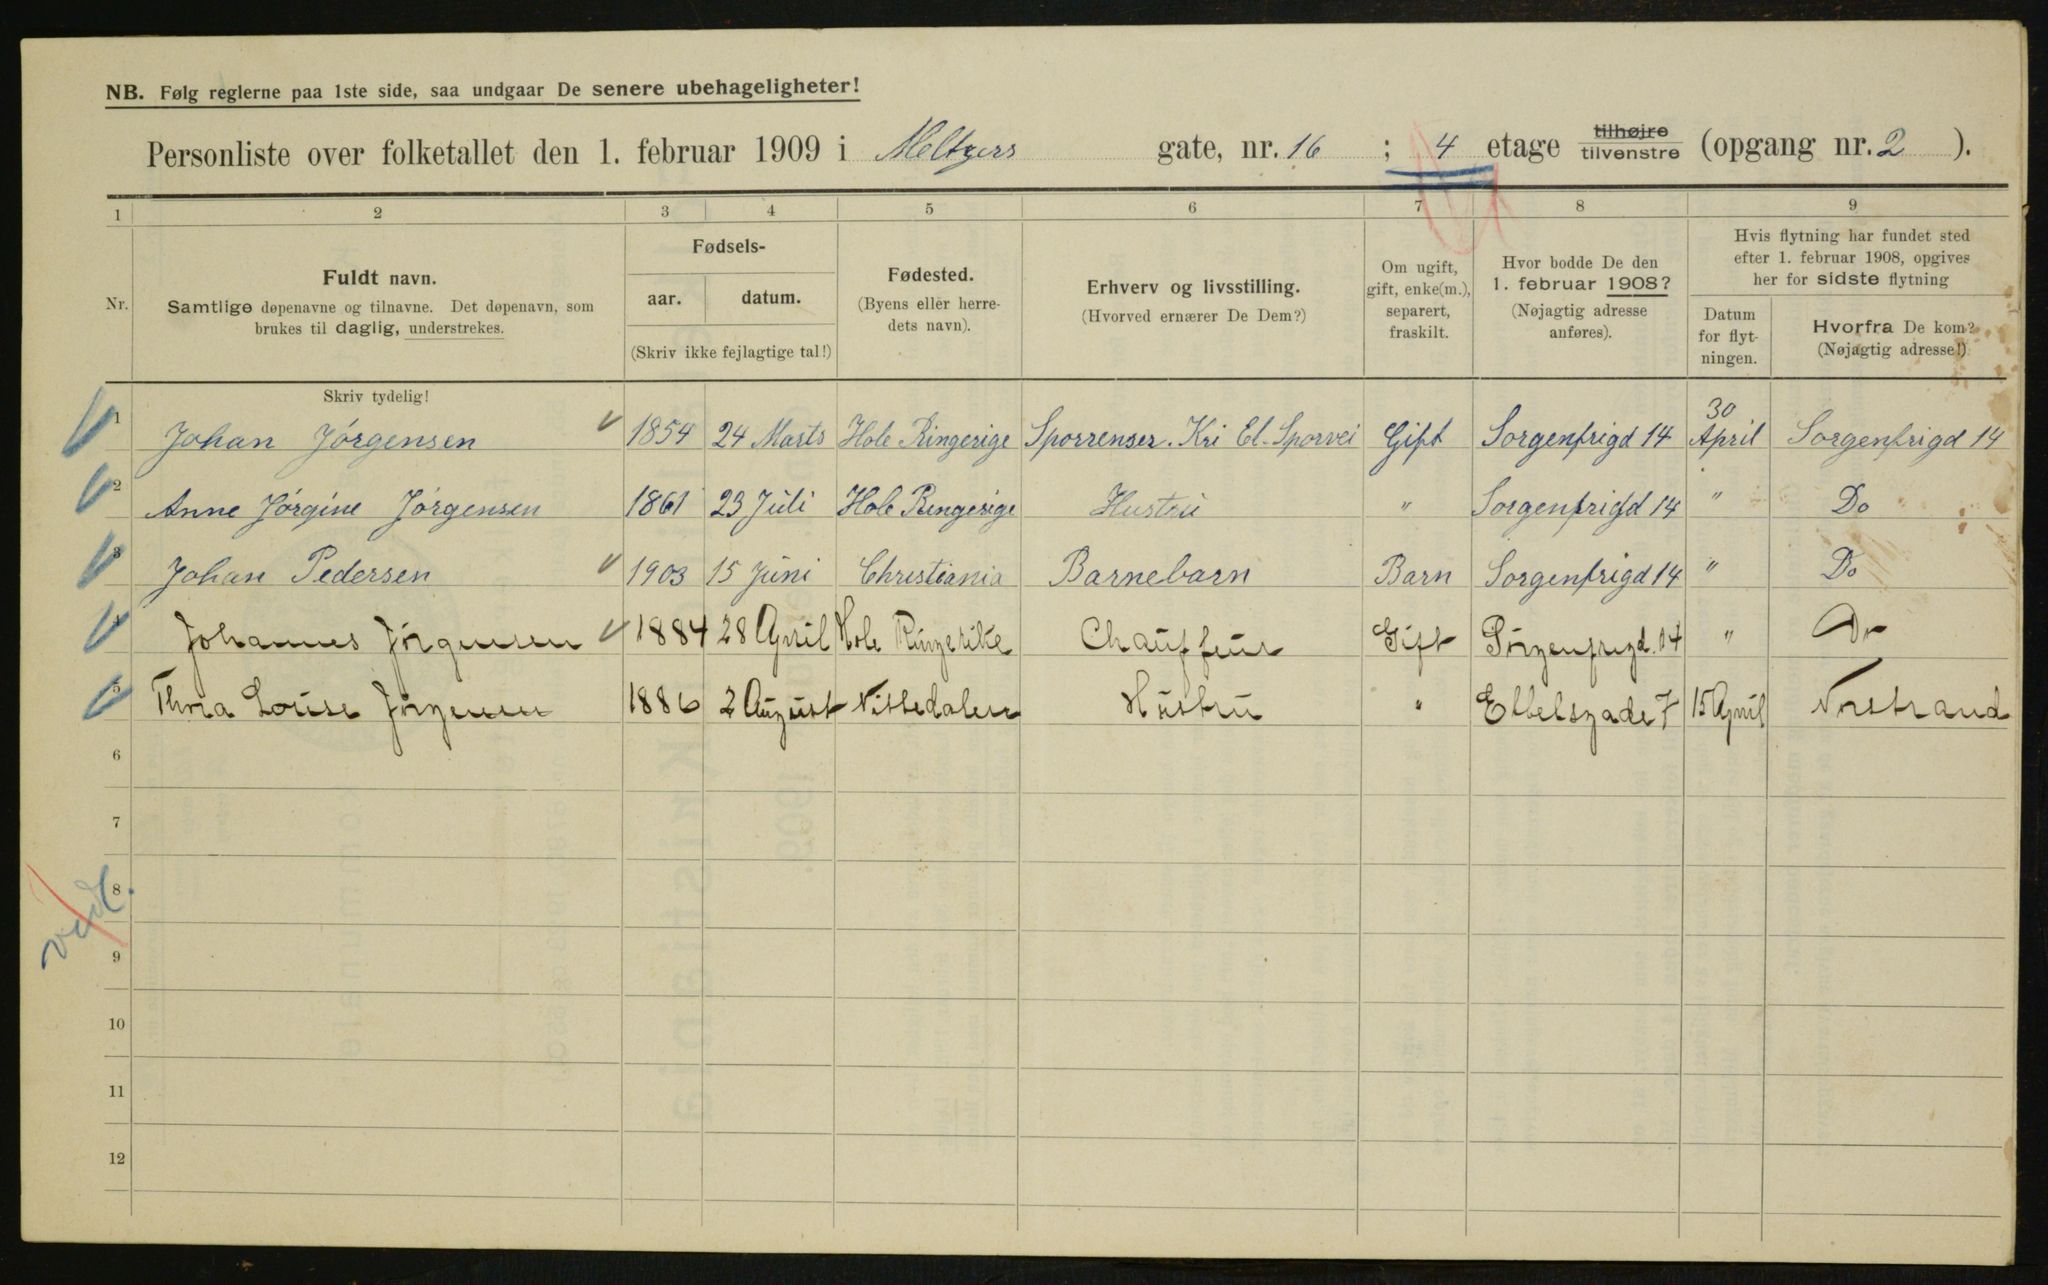 NB. Følg reglerne paa 1ste side, saa undgaar De senere ubehageligheter!
Personliste over folketallet den 1. februar 1909 i Meltzers gate, nr. 16 ; 4 etage tilhøjre tilvenstre (opgang nr. 2 ).
1 2 3 4 5 6 7 8 9
Nr.
Fuldt navn.
Samtlige døpenavne og tilnavne. Det døpenavn, som
brukes til daglig, understrekes.
Fødsels-
aar. datum.
(Skriv ikke fejlagtige tal!)
Fødested.
(Byens eller herre-
dets navn).
Erhverv og livsstilling.
(Hvorved ernærer De Dem?)
Om ugift,
gift, enke(m.),
separert,
fraskilt.
Hvor bodde De den
1. februar 1908?
(Nøjagtig adresse
anføres).
Hvis flytning har fundet sted
efter 1. februar 1908, opgives
her for sidste flytning
Datum
for flyt-
ningen.
Hvorfra De kom?
(Nøjagtig adresse!)
Skriv tydelig!
1 Johan Jørgensen 1854 24 Marts Hole Ringerige Sporrenser. Kri El. Sporvei Gift Sorgenfrigd 14 30 April Sorgenfrigd 14
2 Anne Jørgine Jørgensen 1861 23 Juli Hole Ringerige Hustru " Sorgenfrigd 14 " Do
3 Johan Pedersen 1903 15 Juni Christiania Barnebarn Barn Sorgenfrigd 14 " Do
4 Johannes Jørgensen 1884 28 April Hole Ringerike Chauffeur Gift Sorgenfrigd. 14 " Do
5 Thora Louise Jørgensen 1886 2 August Nittedalen Hustru " Ebbelsgade 7 15 April Norstrand
6
7
8
9
10
11
12